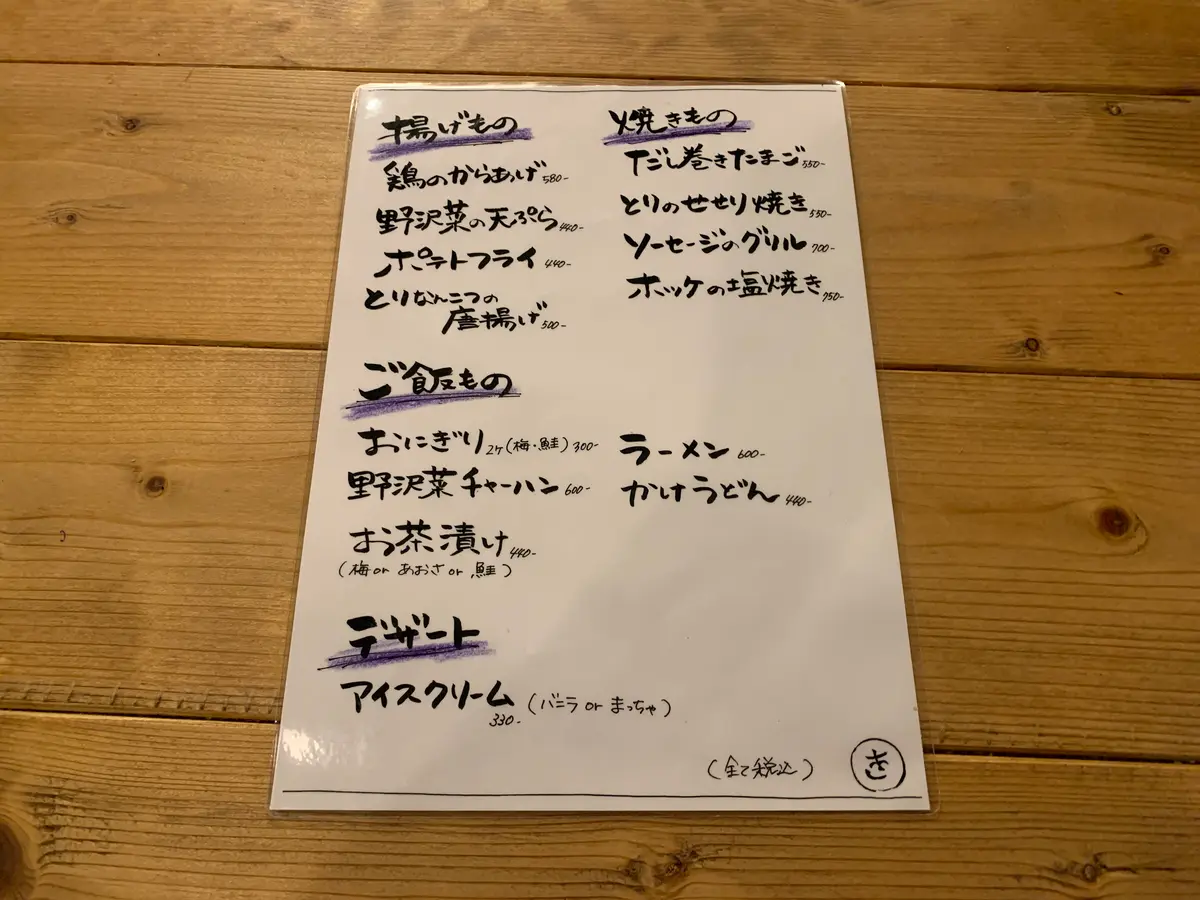 揚げもの
鶏のからあげ 580-
野沢菜の天ぷら 440-
ポテトフライ 440-
とりなんこつの
唐揚げ 500-
焼きもの
だし巻きたまご 550-
とりのせせり焼き 550-
ソーセージのグリル 700-
ホッケの塩焼き 750-
ご飯もの
おにぎり 2ケ(梅・鮭) 300-
野沢菜チャーハン 600-
お茶漬け 440-
(梅 or あおさ or 鮭)
ラーメン 600-
かけうどん 440-
デザート
アイスクリーム (バニラ or まっちゃ)
330-
(全て税込)
き